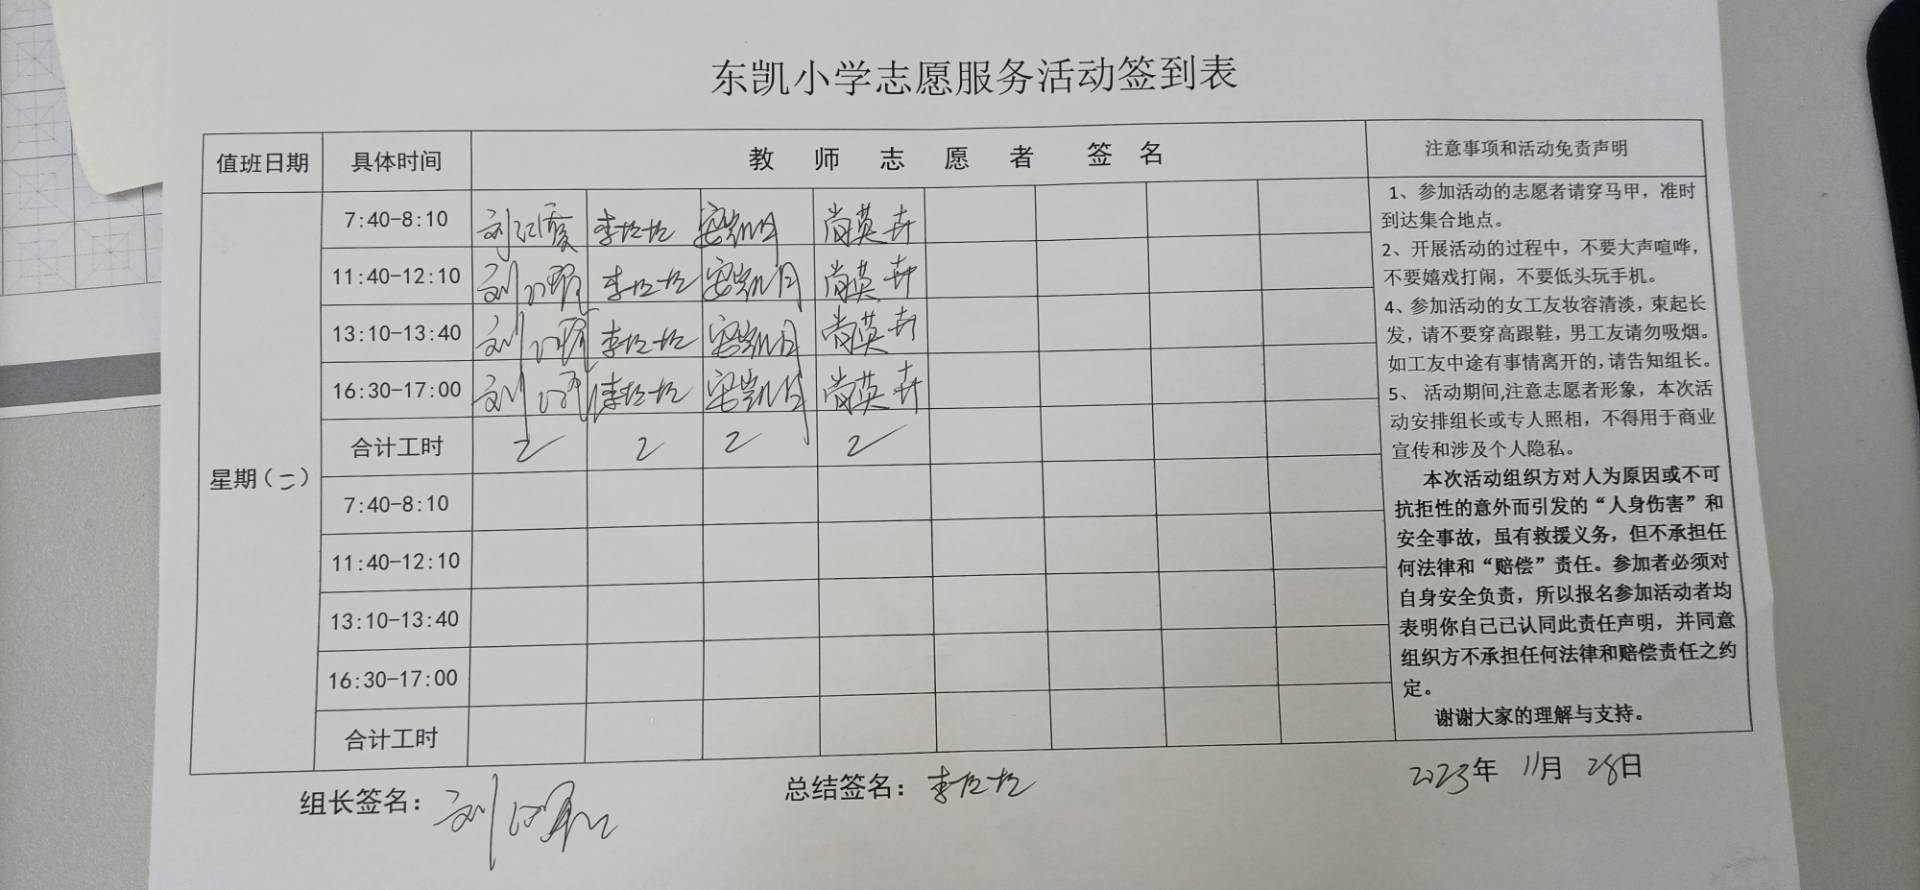 东凯小学志愿服务活动签到表
值班日期 具体时间 教师志愿者 签名 注意事项和活动免责声明
星期(二)
7:40-8:10 刘 李 安凯月 尚英卉
11:40-12:10 刘 李 安凯月 尚英卉
13:10-13:40 刘 李 安凯月 尚英卉
16:30-17:00 刘 李 安凯月 尚英卉
合计工时 2 2 2 2
7:40-8:10
11:40-12:10
13:10-13:40
16:30-17:00
合计工时
1、参加活动的志愿者请穿马甲，准时
到达集合地点。
2、开展活动的过程中，不要大声喧哗，
不要嬉戏打闹，不要低头玩手机。
4、参加活动的女工友妆容清淡，束起长
发，请不要穿高跟鞋，男工友请勿吸烟。
如工友中途有事情离开的,请告知组长。
5、 活动期间,注意志愿者形象，本次活
动安排组长或专人照相，不得用于商业
宣传和涉及个人隐私。
本次活动组织方对人为原因或不可
抗拒性的意外而引发的“人身伤害”和
安全事故，虽有救援义务，但不承担任
何法律和“赔偿”责任。参加者必须对
自身安全负责，所以报名参加活动者均
表明你自己已认同此责任声明，并同意
组织方不承担任何法律和赔偿责任之约
定。
谢谢大家的理解与支持。
组长签名：刘 总结签名：李 2023年 11月 28日